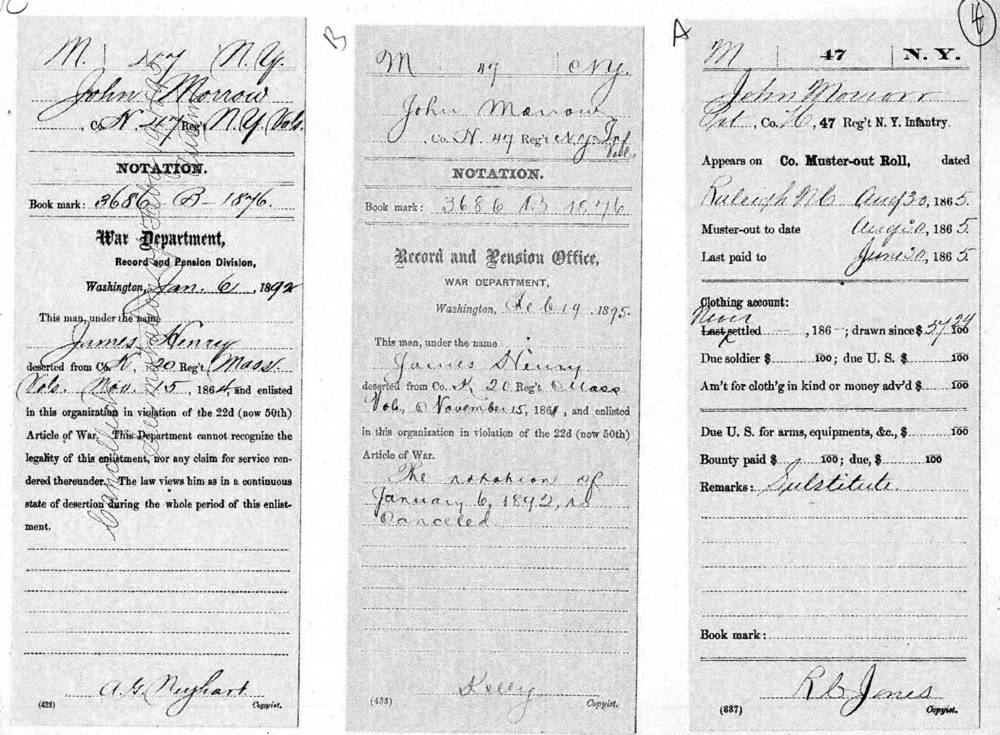 C
M. 47 N.Y.
John Morrow
, Co. H. 47 Reg't N.Y. Vols.
NOTATION.
Book mark: 3686 B- 1876.
War Department,
Record and Pension Division,
Washington, Jan. 6, 1892
This man, under the name
James Henry
deserted from Co. K, 20 Reg't Mass.
Vols. Nov. 15, 1864, and enlisted
in this organization in violation of the 22d (now 50th)
Article of War. This Department cannot recognize the
legality of this enlistment, nor any claim for service ren-
dered thereunder. The law views him as in a continuous
state of desertion during the whole period of this enlist-
ment.
Cancelled notation of Feb. 19
(433)
Copyist.
B
M 47 N.Y.
John Morrow
, Co. H. 47 Reg't N.Y. Inf
Vols.
NOTATION.
Book mark: 3686 B 1876
Record and Pension Office,
WAR DEPARTMENT,
Washington, Feb 19, 1895.
This man, under the name
James Henry
deserted from Co. K 20 Reg't Mass
Vols, November 15, 1864, and enlisted
in this organization in violation of the 22d (now 50th)
Article of War.
The notation of
January 6, 1892, is
Canceled.
Kelly
(433)
Copyist.
A
4
M 47 N. Y.
John Morrow
Pvt, Co. H, 47 Reg't N. Y. Infantry.
Appears on Co. Muster-out Roll, dated
Raleigh NC Aug 30, 1865.
Muster-out to date Aug 30, 1865.
Last paid to June 30, 1865
Clothing account:
Never
Last settled , 186 ; drawn since $ 57 29/100
Due soldier $ 100; due U. S. $ 100
Am't for cloth'g in kind or money adv'd $ 100
Due U. S. for arms, equipments, &c., $ 100
Bounty paid $ 100; due, $ 100
Remarks: Substitute.
Book mark:
Jones
(837)
Copyist.